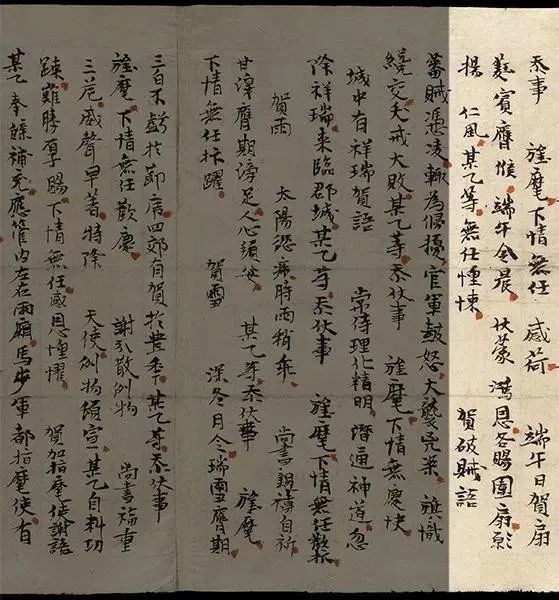 忝事 旌麾下情無任 感荷 端午日賀扇
蕤賓膺候端午令晨 伏蒙 鴻恩各賜團扇願
揚 仁風某乙等無任惶悚 賀破賊語
蕃賊憑凌輒為侵擾官軍鼓怒大襲兇渠 旌識
纔交戎大敗某乙等忝伏事 旌麾下情無慶快
城中有祥瑞賀語 常侍理化精明潛通神道忽
除祥瑞來臨郡城某乙等忝伏事 旌麾下情無任歡抃
賀雨 太陽恣席時雨稍乖 尚書親禱自祈
甘澤膺期滂足人心頓安 某乙等忝伏事 旌麾
下情無任抃躍 賀雪 深冬月令瑞雪膺期
三白不虧於節席四郊有賀於豐年某乙等忝伏事
旌麾下情無任歡慶 謝分散例物 尚書福重
三危威聲早著特降 天使例物頒宣某乙自料功
踈難勝厚賜下情無任感恩惶懼 賀加指麾使謝語
某乙奉牒補充應管內左右兩廂馬步軍都指麾使有